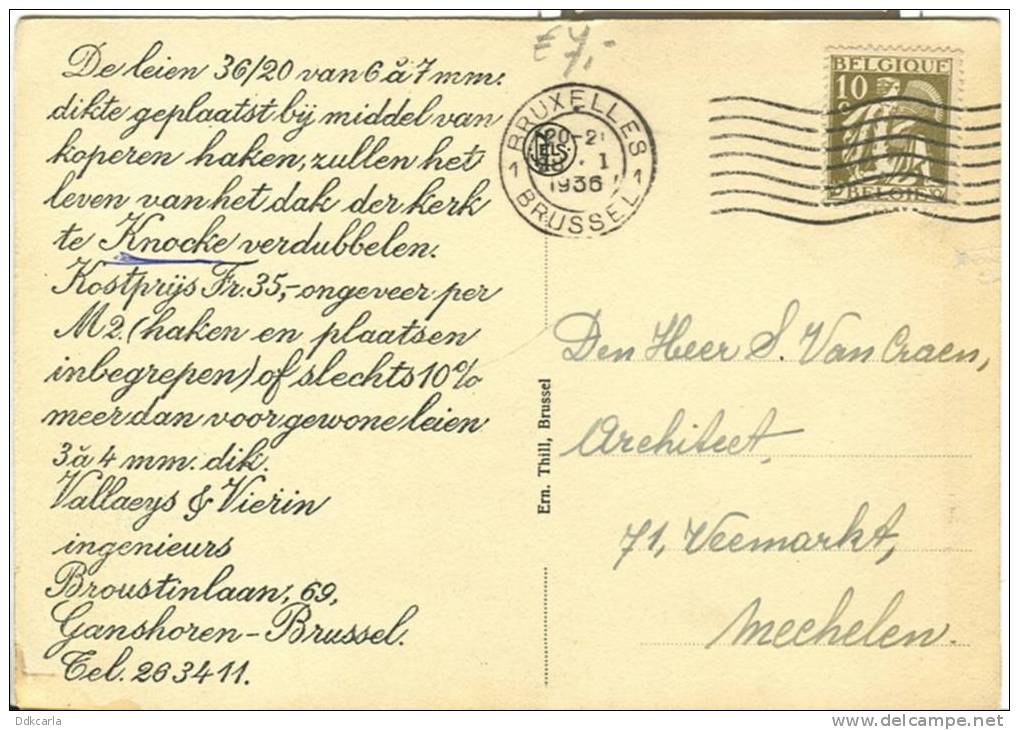 De leien 36/20 van 6 à 7 mm.
dikte geplaatst bij middel van
koperen haken, zullen het
leven van het dak der kerk
te Knocke verdubbelen.
Kostprijs Fr. 35,- ongeveer per
M2. (haken en plaatsen
inbegrepen) of slechts 10%
meer dan voor gewone leien
3 à 4 mm. dik.
Vallaeys & Vierin
ingenieurs
Broustinlaan, 69,
Ganshoren-Brussel.
Tel. 263411.
E 7,-
1 BRUXELLES 1
20-2
I
1936
BRUSSEL
NELS
BELGIQUE
10
C
BELGIE
Ern. Thill, Brussel
Den Heer S. Van Craen,
Architect,
71, Veemarkt,
Mechelen.
Ddkcarla
www.delcampe.net